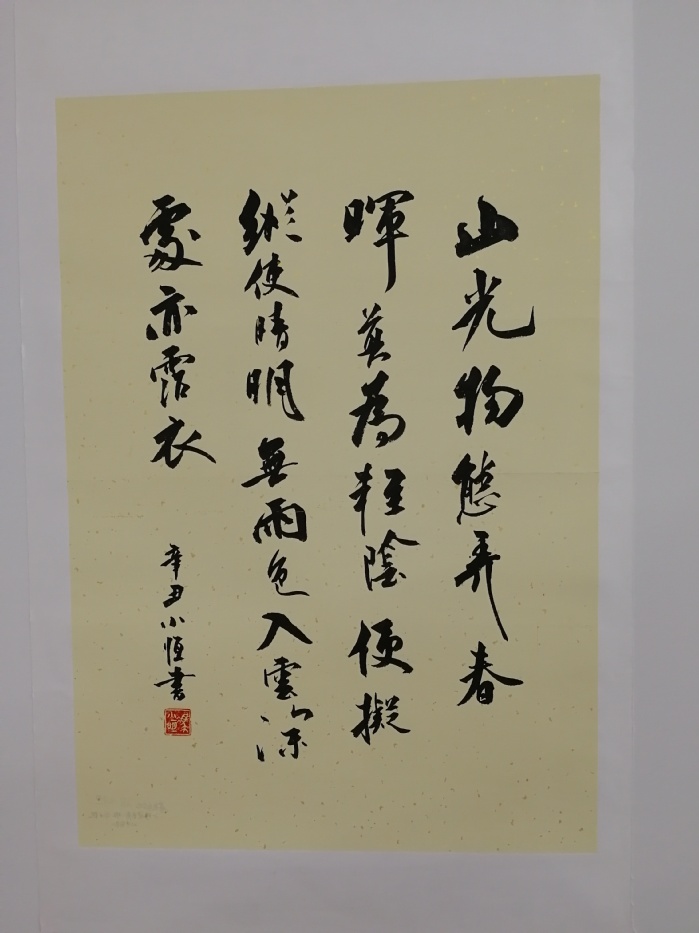 山光物態弄春
暉莫為輕陰便擬
縱使晴明無雨色入雲深
處亦霑衣
辛丑小恒書